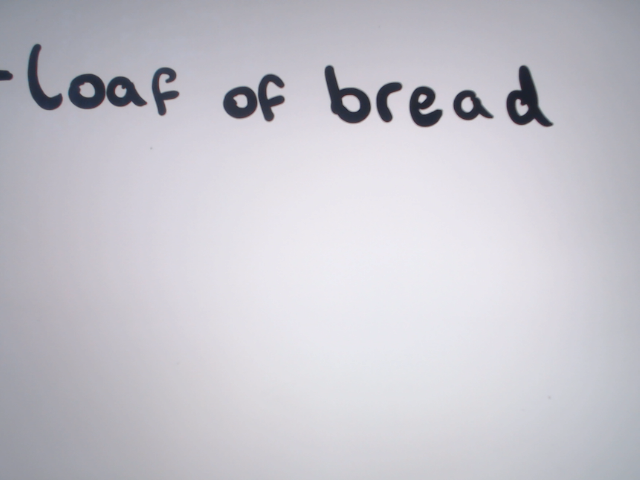 -loaf of bread